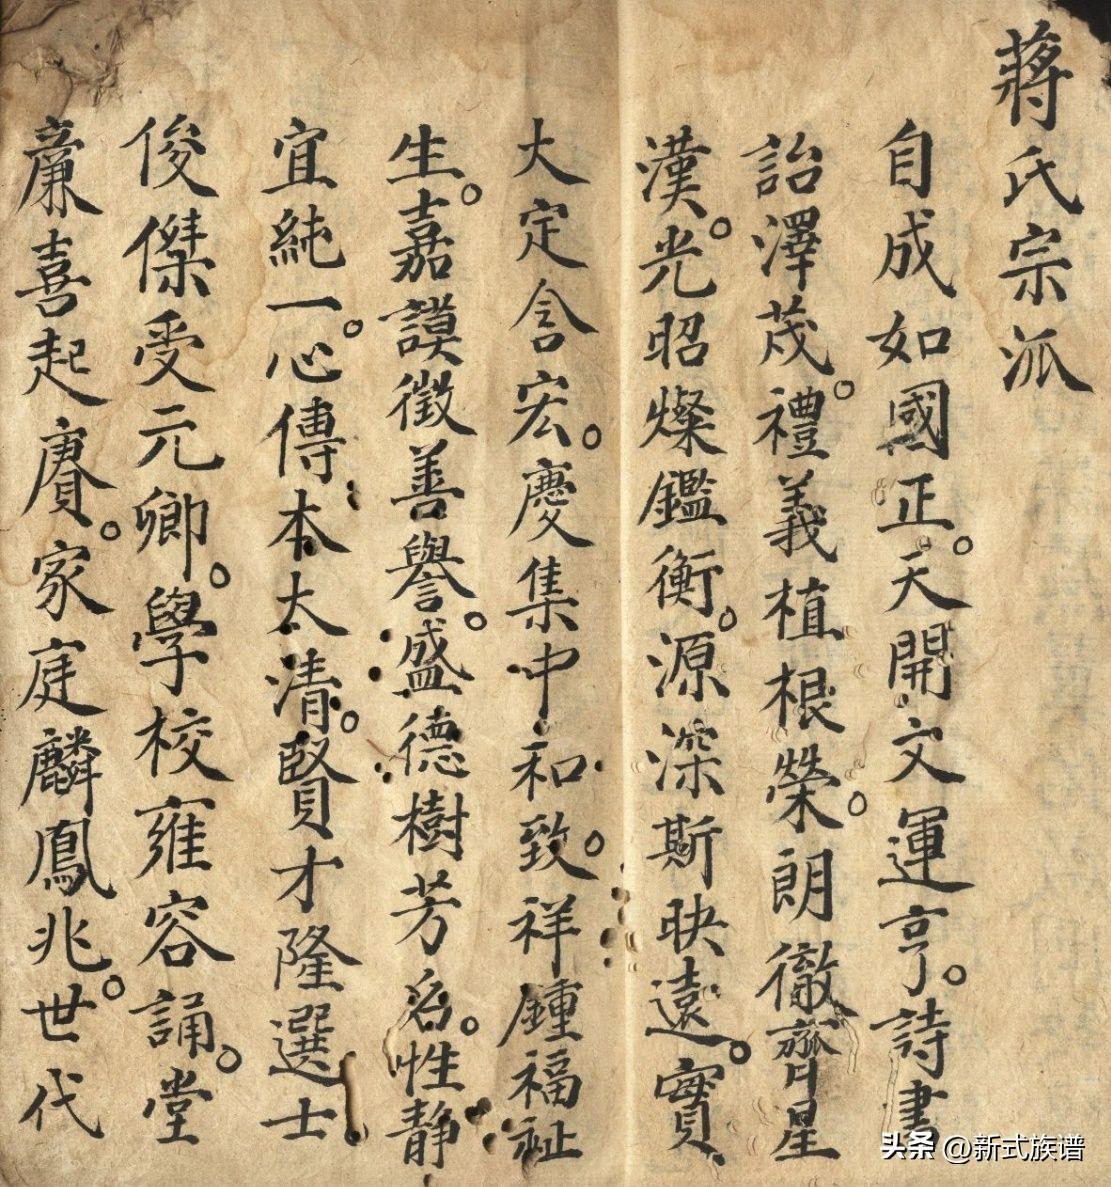 蔣氏宗派
自成如國正。天開文運亨。詩書
詒澤茂。禮義植根榮。朗徹齊星
漢。光昭燦鑑衡。源深斯昳遠。實
大定含宏。慶集中和致。祥鍾福祉
生。嘉謨徵善譽。盛德樹芳名。性静
宜純一。心傳本太清。賢才隆選士
俊傑受元卿。學校雍容誦。堂
廉喜起賡。家庭麟鳳兆。世代
头条 @新式族谱